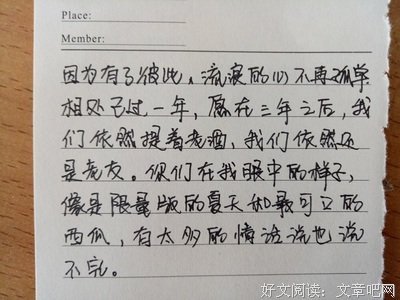 Place:
Member:
因为有了彼此，流浪的心不再孤单
相处已过一年，愿在三年之后，我
们依然提着老酒，我们依然还
是老友。你们在我眼中的样子，
像是限量版的夏天和最可口的
西瓜，有太多的情话说也说
不完。
好文阅读：文章吧网